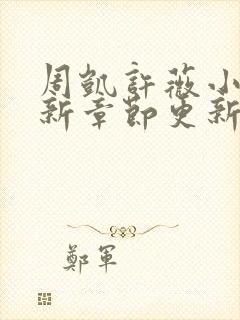 周凱許薇小
新章節更新
鄭軍